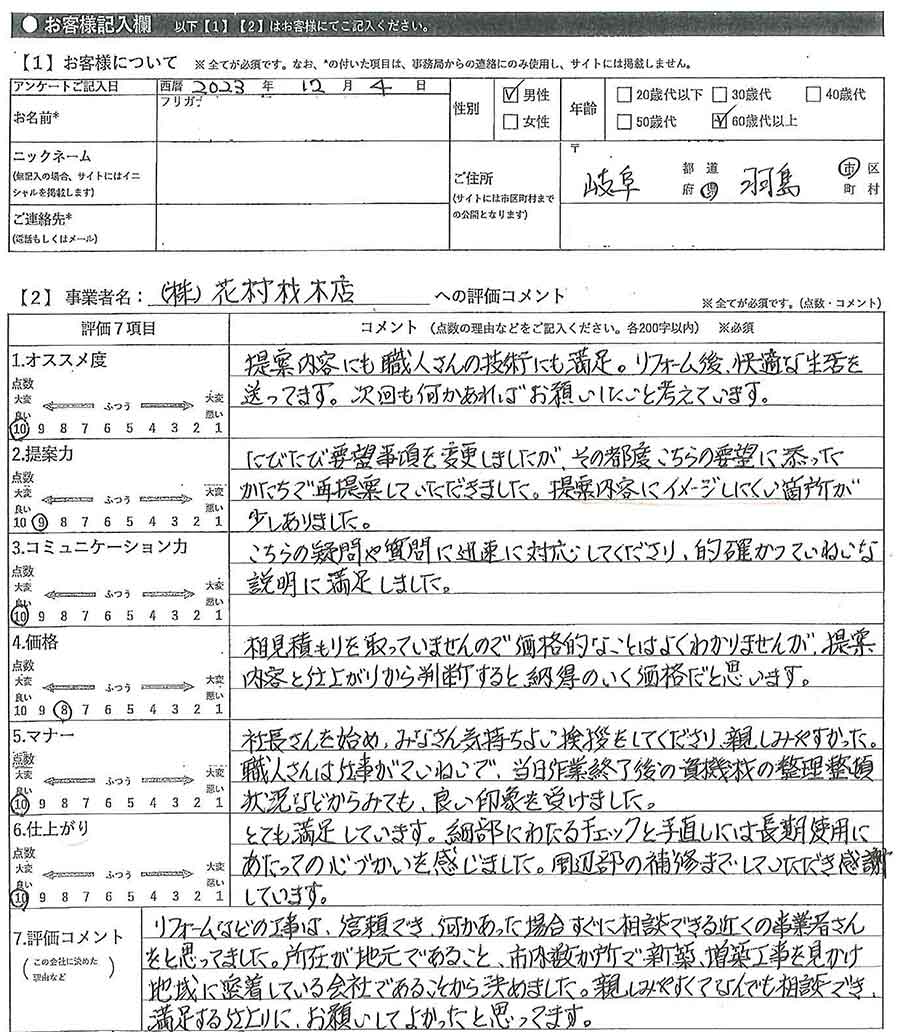 ● お客様記入欄 以下【1】【2】はお客様にてご記入ください。
【1】お客様について ※全てが必須です。なお、*の付いた項目は、事務局からの連絡にのみ使用し、サイトには掲載しません。
アンケートご記入日 西暦 2023 年 12 月 4 日
お名前*
フリガナ
性別 ☑男性 □女性
年齢 □20歳代以下 □30歳代 □40歳代
□50歳代 ☑60歳代以上
ニックネーム
(無記入の場合、サイトにはイニ
シャルを掲載します)
ご連絡先*
(電話もしくはメール)
ご住所
(サイトには市区町村まで
の公開となります)
〒
岐阜 都道府県 羽島 市区町村
【2】事業者名: (株)花村材木店 への評価コメント
※全てが必須です。(点数・コメント)
評価7項目 コメント (点数の理由などをご記入ください。各200字以内) ※必須
1.オススメ度
点数
大変良い ふつう 大変悪い
10 9 8 7 6 5 4 3 2 1
提案内容にも職人さんの技術にも満足。リフォーム後、快適な生活を
送ってます。次回も何かあればお願いしたいと考えています。
2.提案力
点数
大変良い ふつう 大変悪い
10 9 8 7 6 5 4 3 2 1
たびたび要望事項を変更しましたが、その都度こちらの要望に添った
かたちで再提案していただきました。提案内容にイメージしにくい箇所が
少しありました。
3.コミュニケーション力
点数
大変良い ふつう 大変悪い
10 9 8 7 6 5 4 3 2 1
こちらの疑問や質問に迅速に対応してくださり、的確かつていねいな
説明に満足しました。
4.価格
点数
大変良い ふつう 大変悪い
10 9 8 7 6 5 4 3 2 1
相見積もりを取っていませんので価格的なことはよくわかりませんが、提案
内容と仕上がりから判断すると納得のいく価格だと思います。
5.マナー
点数
大変良い ふつう 大変悪い
10 9 8 7 6 5 4 3 2 1
社長さんを始め、みなさん気持ちよい挨拶をしてくださり、親しみやすかった。
職人さんは仕事がていねいで、当日作業終了後の資機材の整理整頓
状況などからみても、良い印象を受けました。
6.仕上がり
点数
大変良い ふつう 大変悪い
10 9 8 7 6 5 4 3 2 1
とても満足しています。細部にわたるチェックと手直しには長期使用に
あたっての心づかいを感じました。周辺部の補修までしていただき感謝
しています。
7.評価コメント
(この会社に決めた
理由など)
リフォームなどの工事は、信頼でき、何かあった場合すぐに相談できる近くの事業者さん
をと思ってました。所在が地元であること、市内数か所で新築、増築工事を見かけ
地域に密着している会社であることから決めました。親しみやすくてなんでも相談でき、
満足する仕上りに、お願いしてよかったと思ってます。